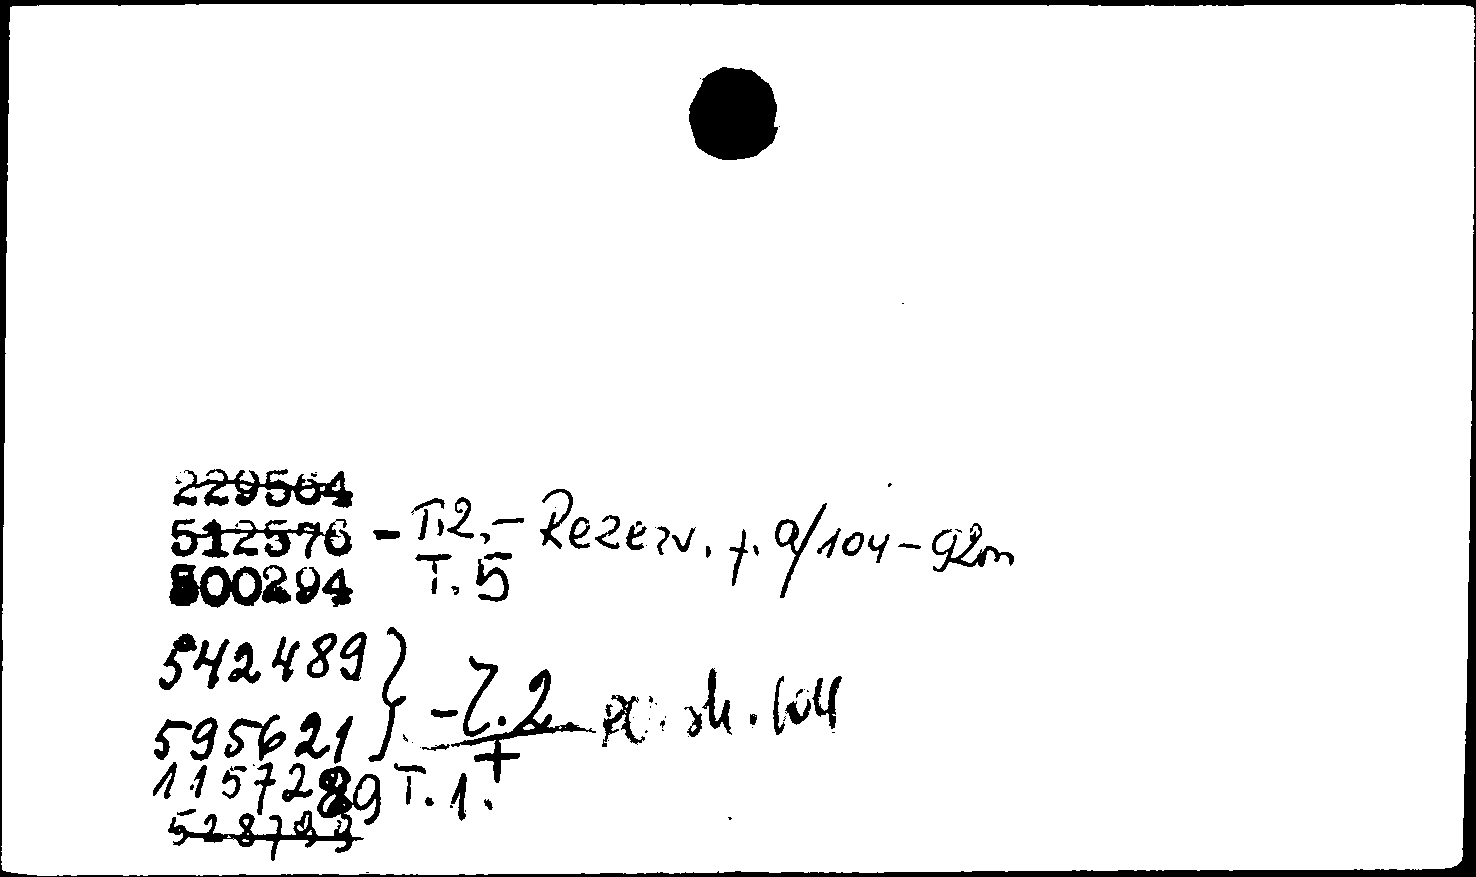 229564
512576 - T.2. - Rezerv. f. a/104 - 92m
500294 T. 5
542489
595621 } - T.2
1157289 T. 1. +
528799